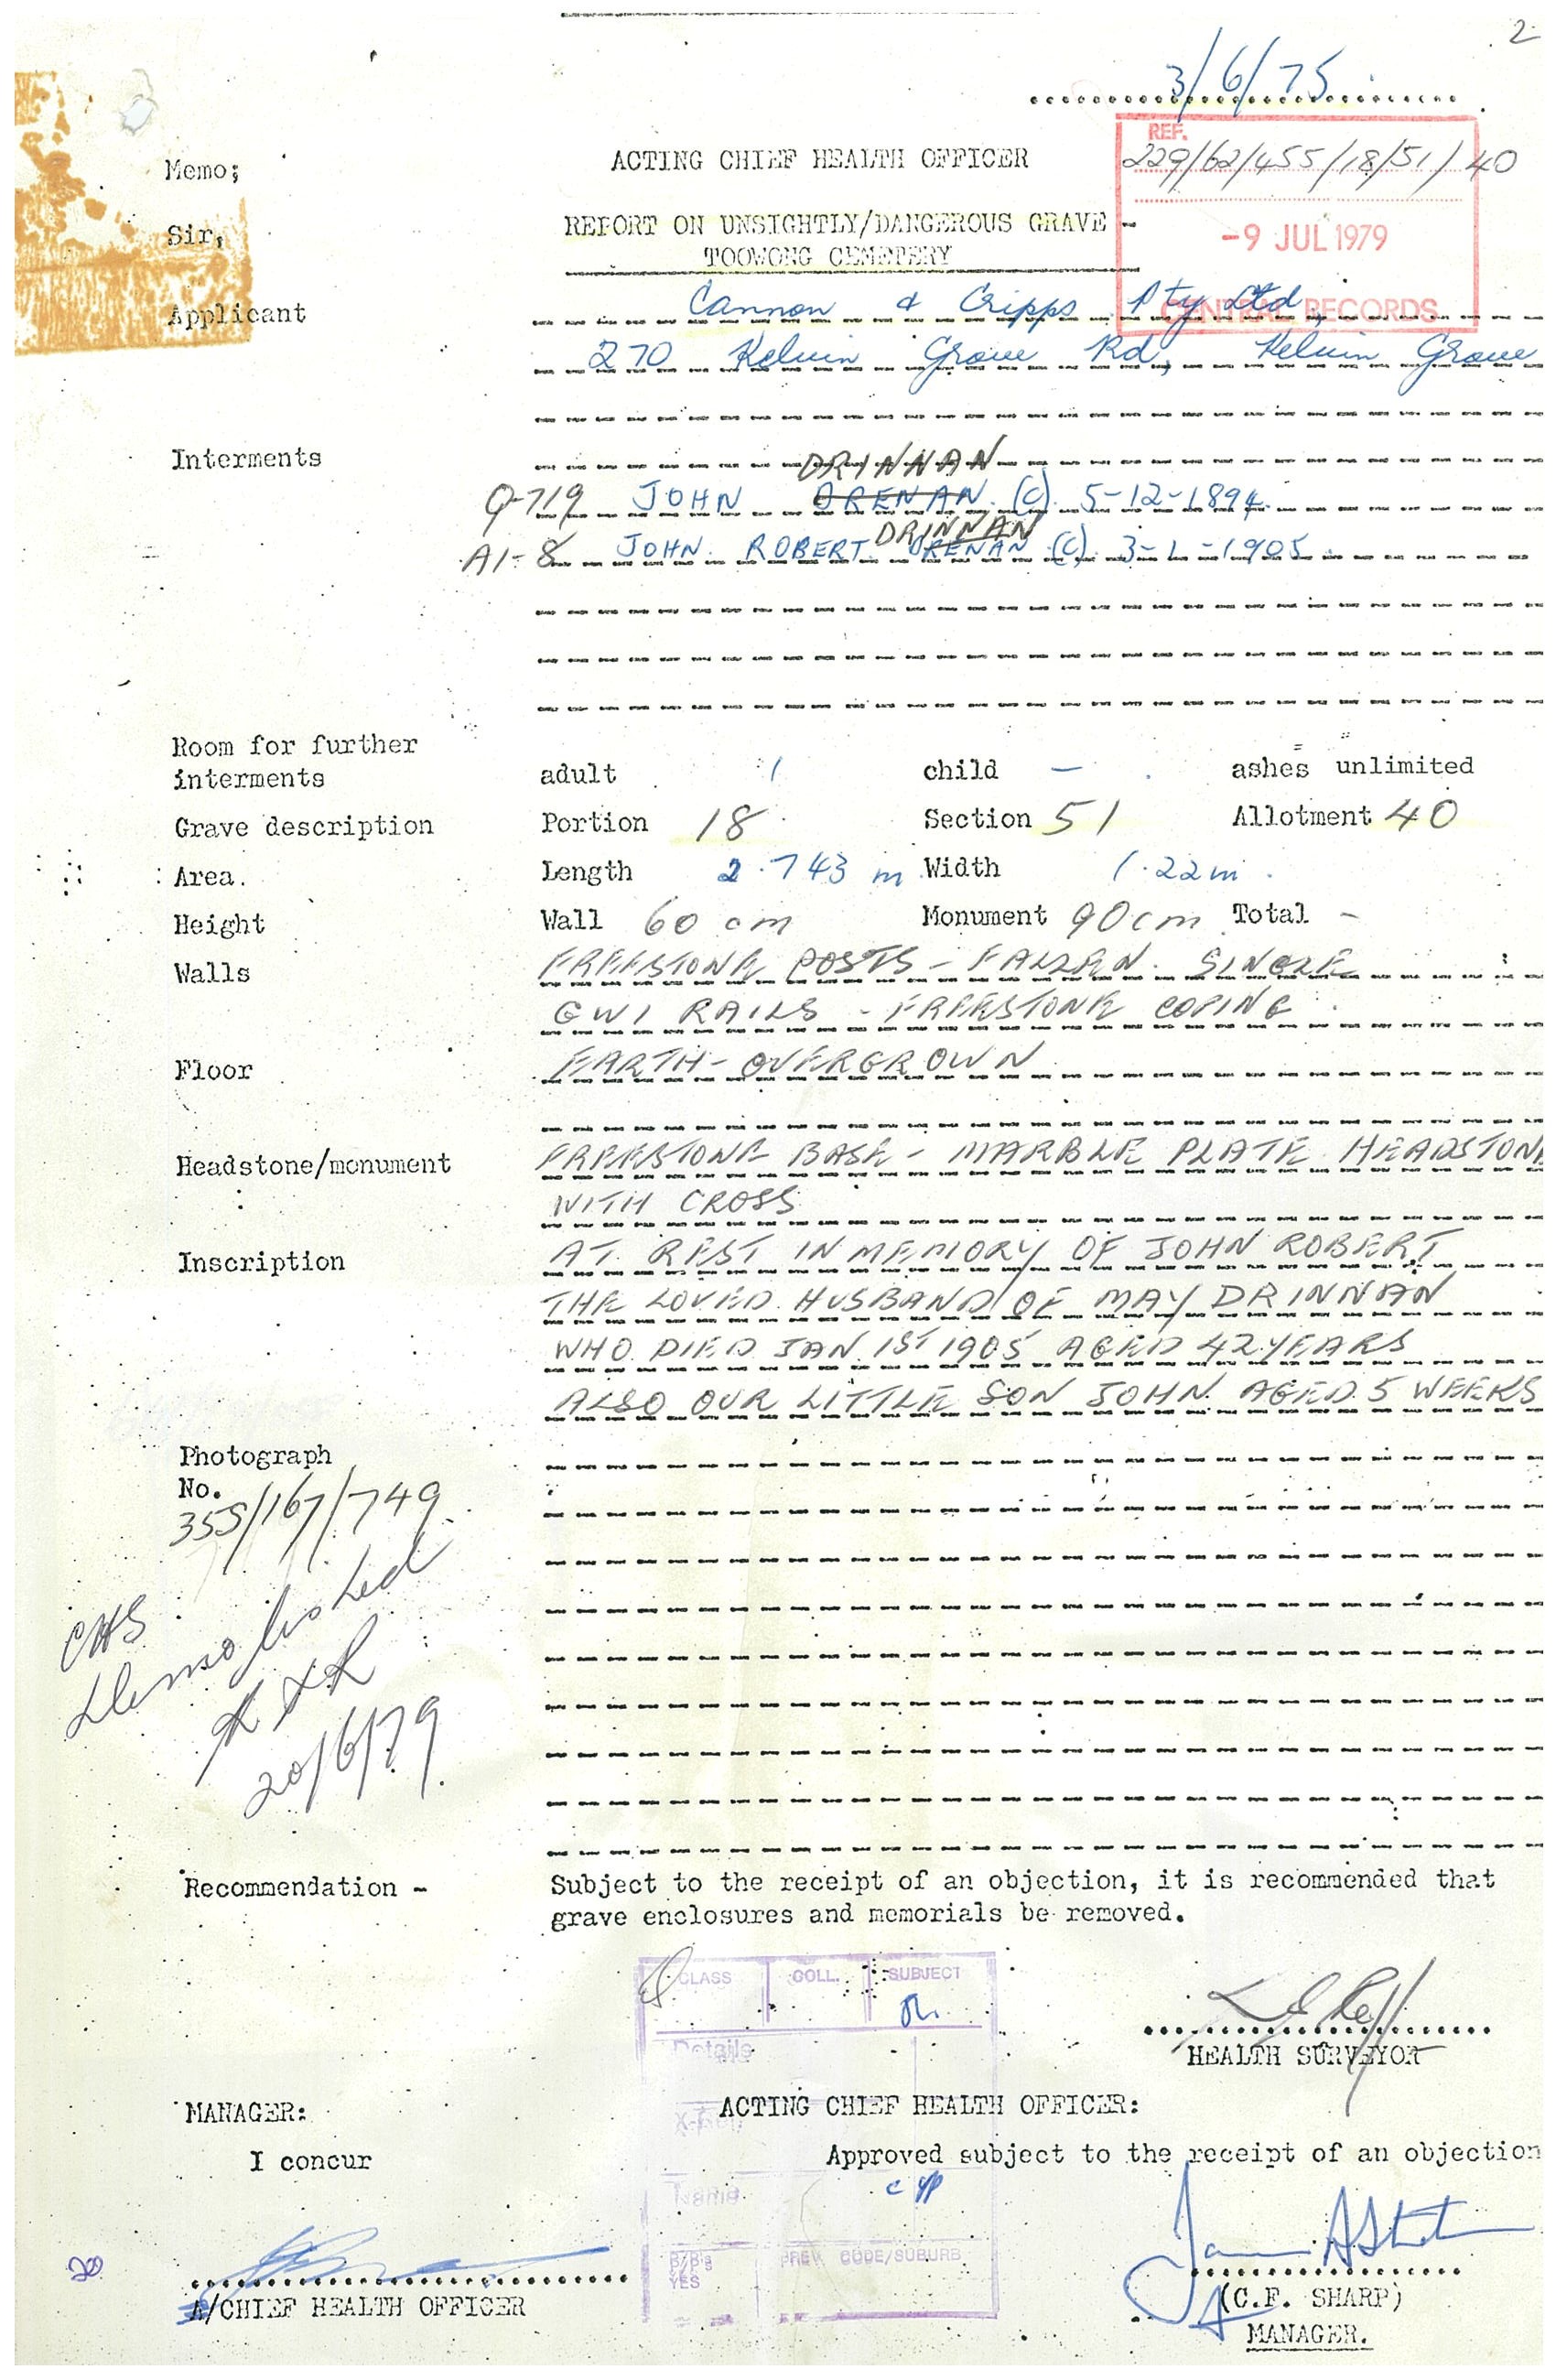 2
3/6/75
REF.
229/62/455/18/51/40
-9 JUL 1979
CENTRAL RECORDS
Memo;
ACTING CHIEF HEALTH OFFICER
Sir,
REPORT ON UNSIGHTLY/DANGEROUS GRAVE -
TOOWONG CEMETERY
Applicant
Cannon & Cripps Pty Ltd,
270 Kelvin Grove Rd, Kelvin Grove
Interments
DRINNAN
Q-719 JOHN DRENAN (C) 5-12-1894
DRINNAN
A1-8 JOHN ROBERT DRENAN (C) 3-1-1905
Room for further
interments adult 1 child - ashes unlimited
Grave description Portion 18 Section 51 Allotment 40
Area. Length 2.743 m Width 1.22m.
Height Wall 60 cm Monument 90cm Total -
Walls FREESTONE POSTS - FALLEN. SINGLE
GWI RAILS - FREESTONE COPING.
Floor EARTH - OVERGROWN
Headstone/monument FREESTONE BASE - MARBLE PLATE HEADSTONE
WITH CROSS
Inscription AT REST IN MEMORY OF JOHN ROBERT
THE LOVED HUSBAND OF MAY DRINNAN
WHO DIED JAN 1ST 1905 AGED 42 YEARS
ALSO OUR LITTLE SON JOHN AGED 5 WEEKS
Photograph
No.
355/167/749
CHS
Demolished
20/6/79
Recommendation - Subject to the receipt of an objection, it is recommended that
grave enclosures and memorials be removed.
CLASS COLL. SUBJECT
Details
HEALTH SURVEYOR
MANAGER: ACTING CHIEF HEALTH OFFICER:
I concur Approved subject to the receipt of an objection
Name
B/B's
YES
PREV CODE/SUBURB
A/CHIEF HEALTH OFFICER
(C.F. SHARP)
MANAGER.